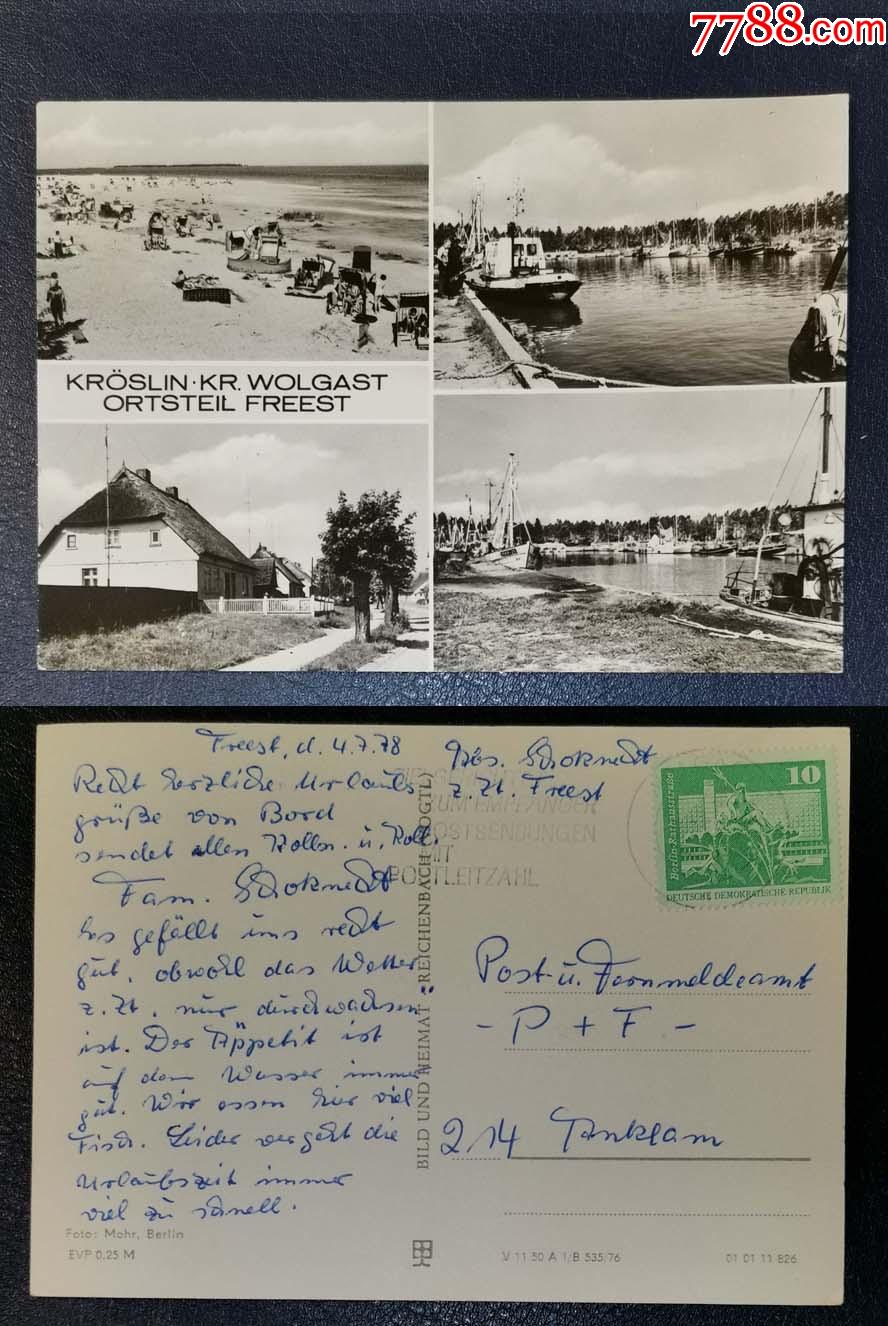 7788.com
KRÖSLIN · KR. WOLGAST
ORTSTEIL FREEST
Freest, d. 4.7.78
Recht herzliche Urlaubs
grüße von Bord
sendet allen Kolln. u. Koll.
Fam. Schoknecht
Es gefällt uns recht
gut, obwohl das Wetter
z. Zt. nur durchwachsen
ist. Der Appetit ist
auf dem Wasser immer
gut. Wir essen hier viel
Fisch. Leider vergeht die
Urlaubszeit immer
viel zu schnell.
Foto: Mohr, Berlin
EVP 0.25 M
BILD UND HEIMAT REICHENBACH (VOGTL)
Abs. Schoknecht
z. Zt. Freest
ZUM EMPFÄNGER
POSTSENDUNGEN
MIT
POSTLEITZAHL
10
Berlin-Rathausstraße
DEUTSCHE DEMOKRATISCHE REPUBLIK
Post- u. Fernmeldeamt
- P + F -
214 Anklam
V 11 50 A 1/B 535/76
01 01 11 826